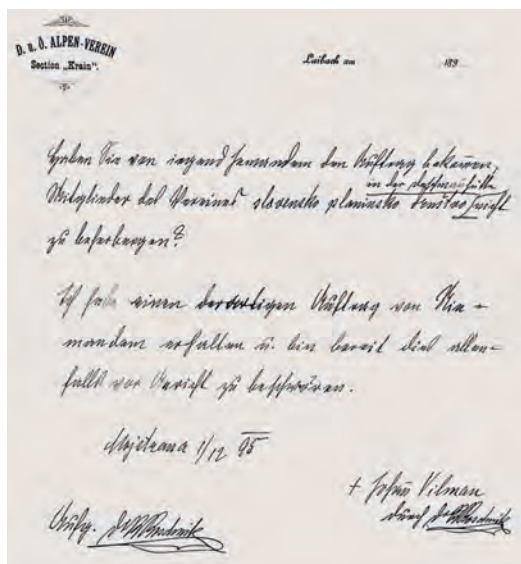 D. u. Ö. ALPEN-VEREIN
Section „Krain".
Laibach am 189
Haben Sie von irgend Jemandem den Auftrag bekommen,
in der Deschmannhütte
Mitglieder des Vereines slovensko planinsko društvo nicht
zu beherbergen?
Ich habe einen derartigen Auftrag von Nie-
mandem erhalten u. bin bereit dies allen-
falls vor Gericht zu beschwören.
Mojstrana 1/12 95
+ Johann Vilman
durch
Aufg.